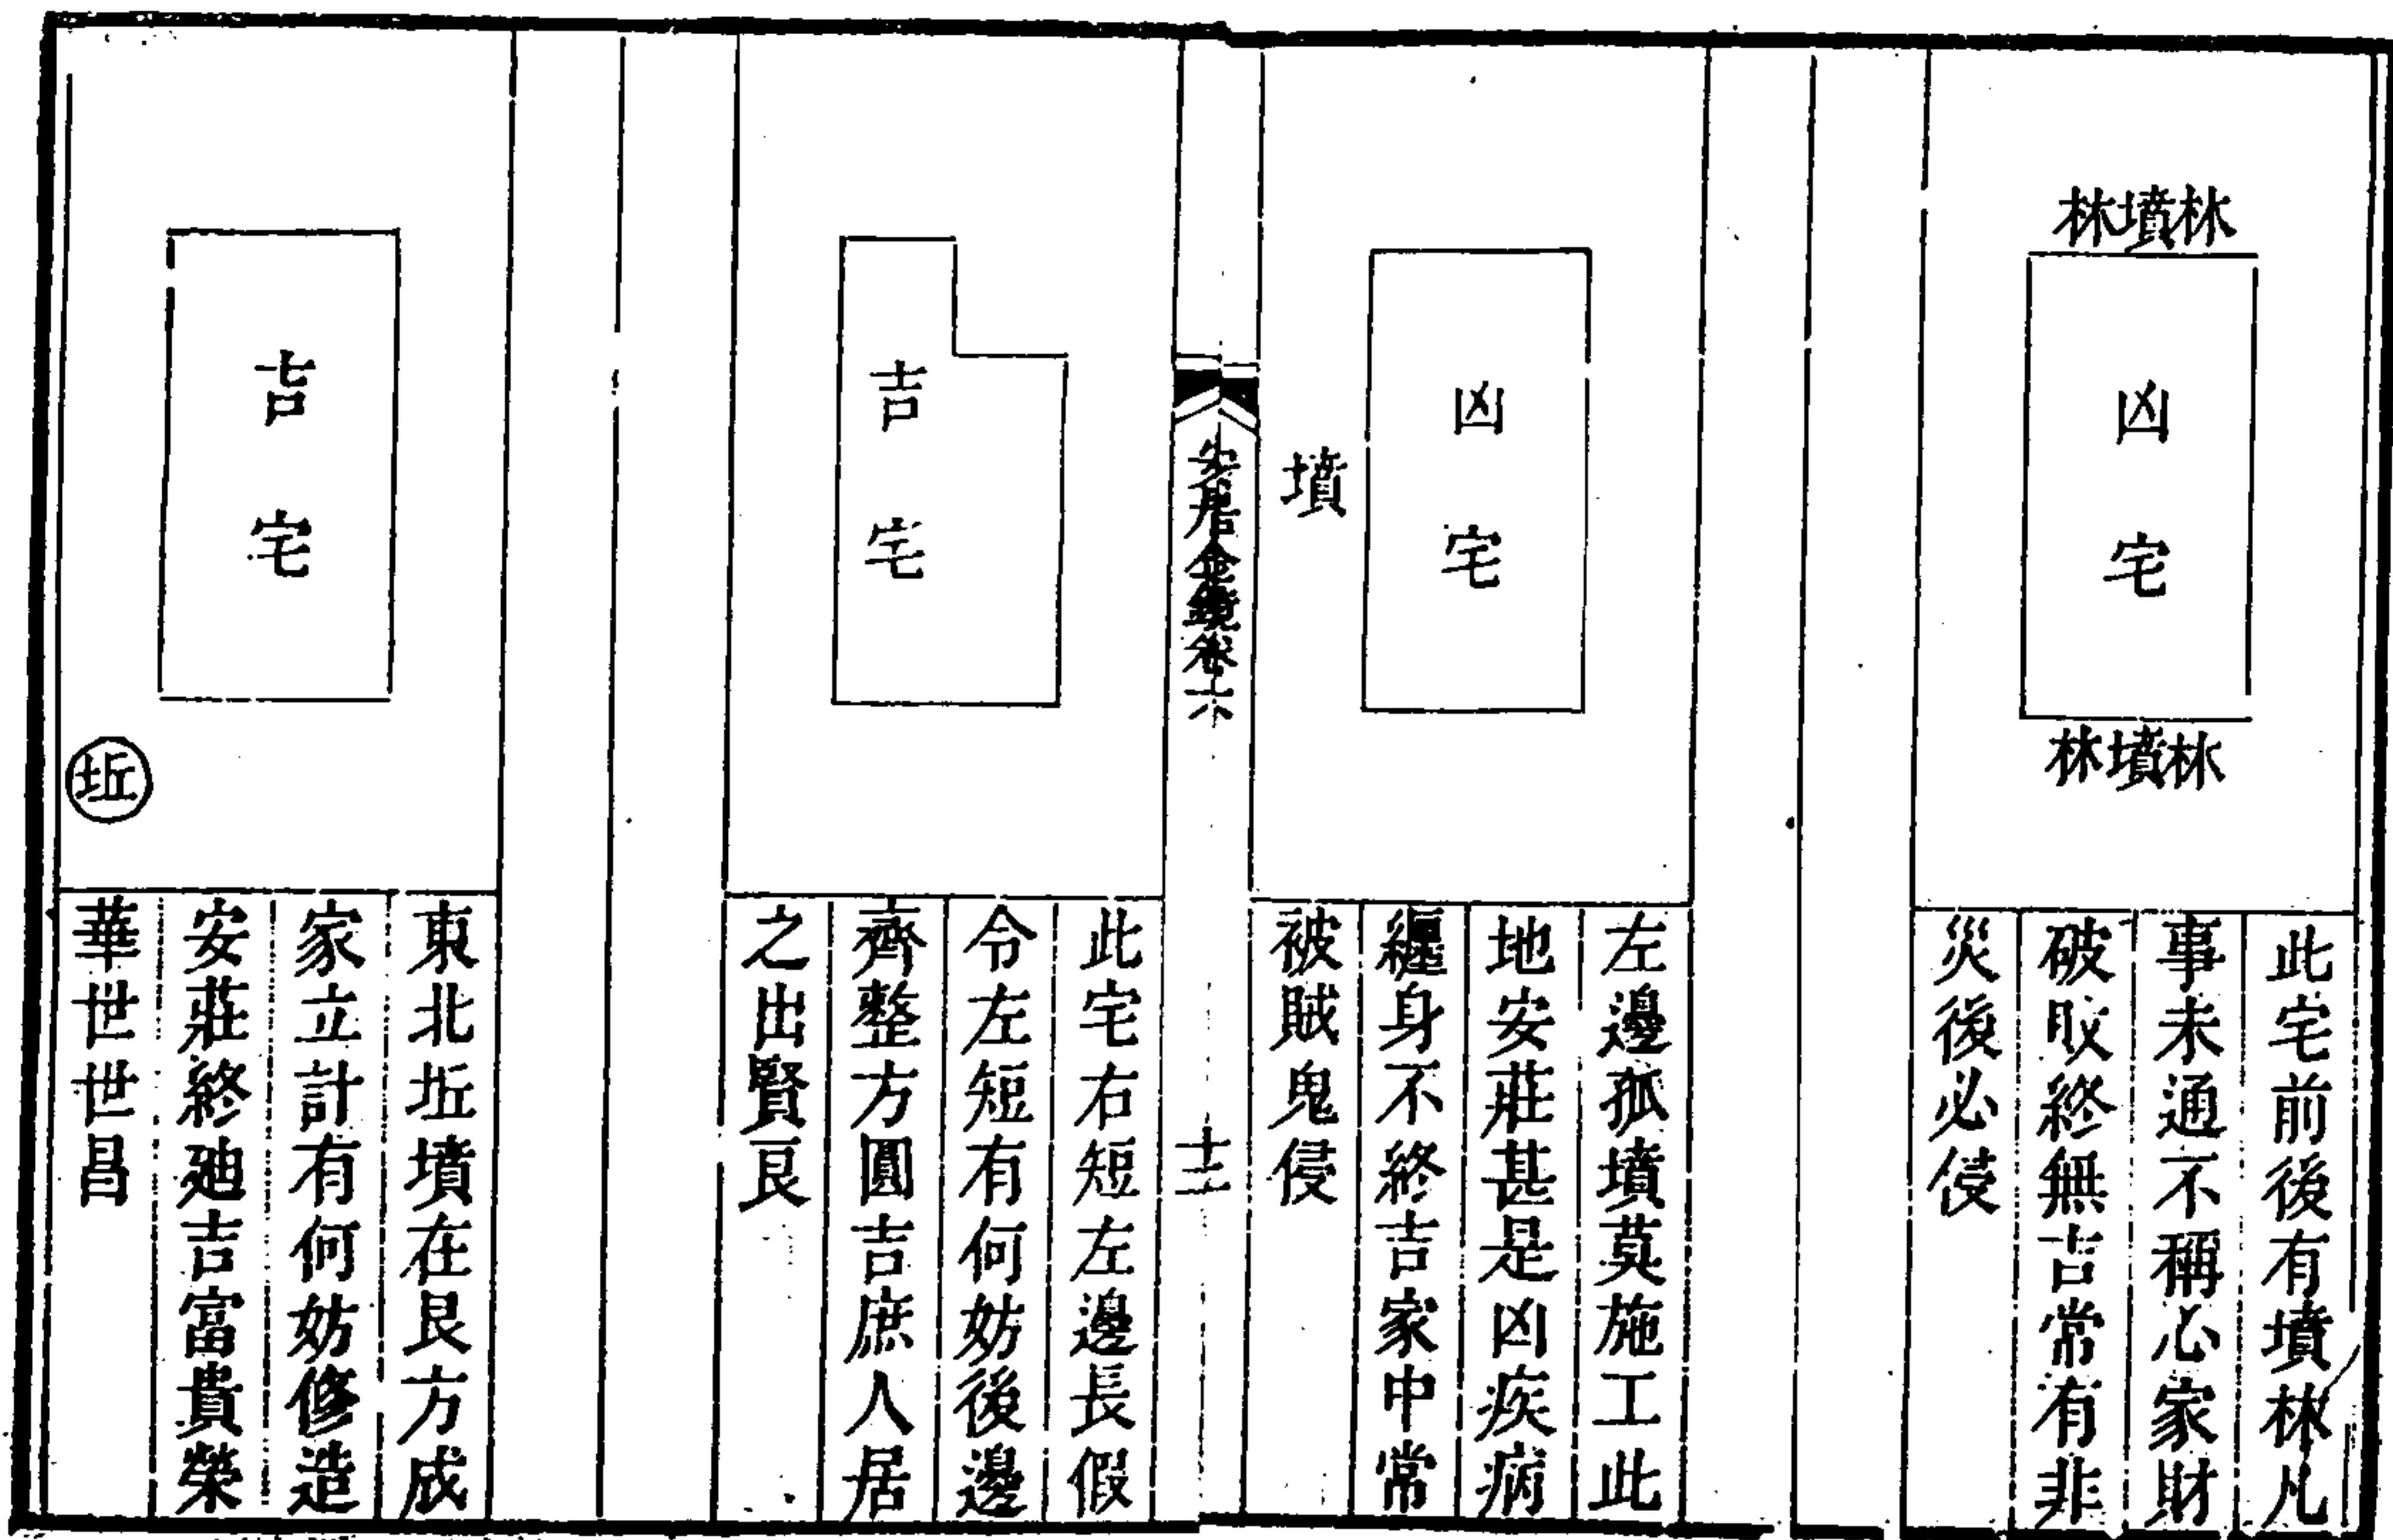 林墳林
凶宅
林墳林
此宅前後有墳林凡
事未通不稱心家財
破敗終無吉常有非
災後必侵
凶宅
墳
左邊孤墳莫施工此
地安莊甚是凶疾病
纒身不終吉家中常
被賊鬼侵
安居金鏡卷六
十二
吉宅
此宅右短左邊長假
令左短有何妨後邊
齊整方圓吉庶人居
之出賢良
吉宅
坵
東北坵墳在艮方成
家立計有何妨修造
安莊終廸吉富貴榮
華世世昌